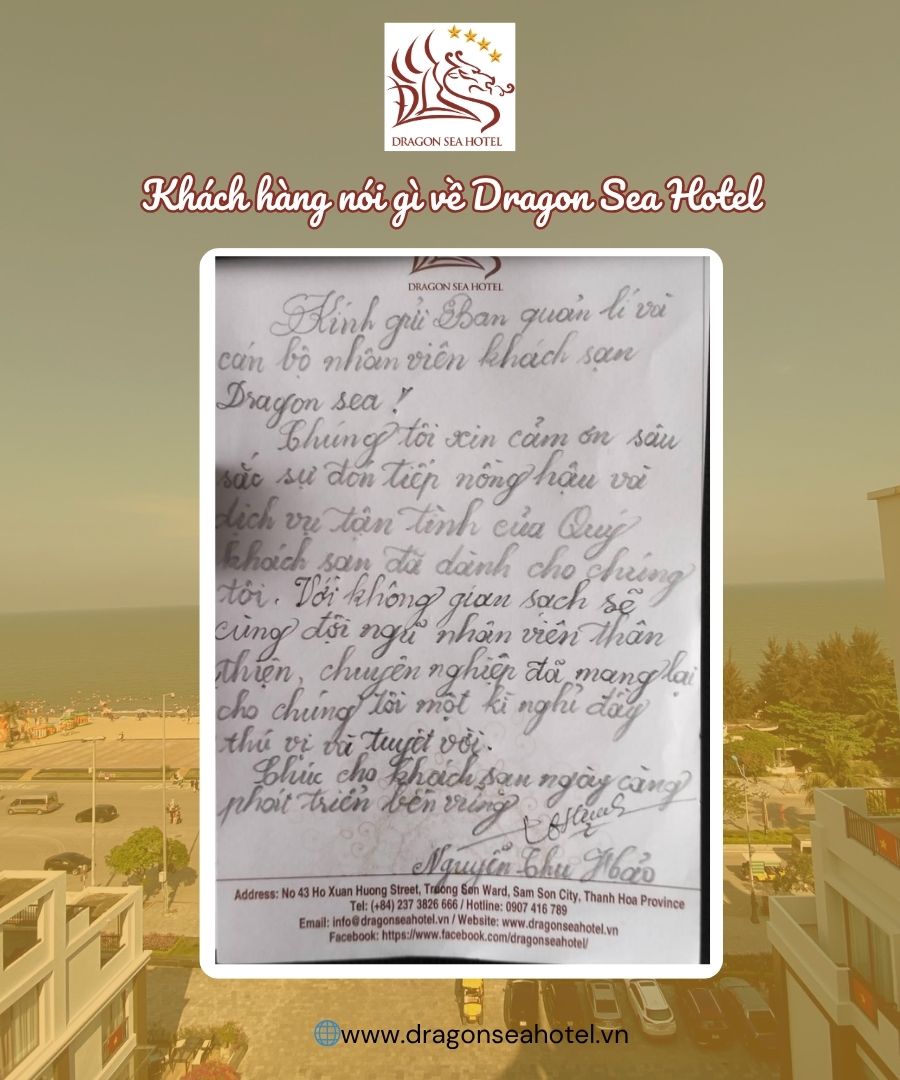 DRAGON SEA HOTEL
Khách hàng nói gì về Dragon Sea Hotel
DRAGON SEA HOTEL
Kính gửi Ban quản lí và
cán bộ nhân viên khách sạn
Dragon sea!
Chúng tôi xin cảm ơn sâu
sắc sự đón tiếp nồng hậu và
dịch vụ tận tình của Quý
khách sạn đã dành cho chúng
tôi. Với không gian sạch sẽ
cùng đội ngũ nhân viên thân
thiện, chuyên nghiệp đã mang lại
cho chúng tôi một kì nghỉ đầy
thú vị và tuyệt vời.
Chúc cho khách sạn ngày càng
phát triển bền vững
Nguyễn Thu Hảo
Address: No 43 Ho Xuan Huong Street, Truong Son Ward, Sam Son City, Thanh Hoa Province
Tel: (+84) 237 3826 666 / Hotline: 0907 416 789
Email: info@dragonseahotel.vn / Website: www.dragonseahotel.vn
Facebook: https://www.facebook.com/dragonseahotel/
www.dragonseahotel.vn